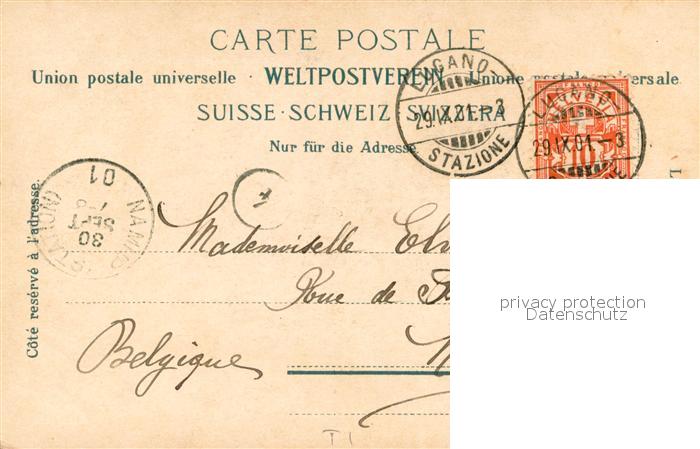 CARTE POSTALE
Union postale universelle · WELTPOSTVEREIN · Unione postale universale
SUISSE · SCHWEIZ · SVIZZERA
Nur für die Adresse.
LUGANO
29.IX.01.-3
STAZIONE
LUGANO
29.IX.01.-3
10
NAMUR (STATION)
30
SEPT
01
Côté reservé à l'adresse.
Mademoiselle
Rue de
Belgique
privacy protection
Datenschutz